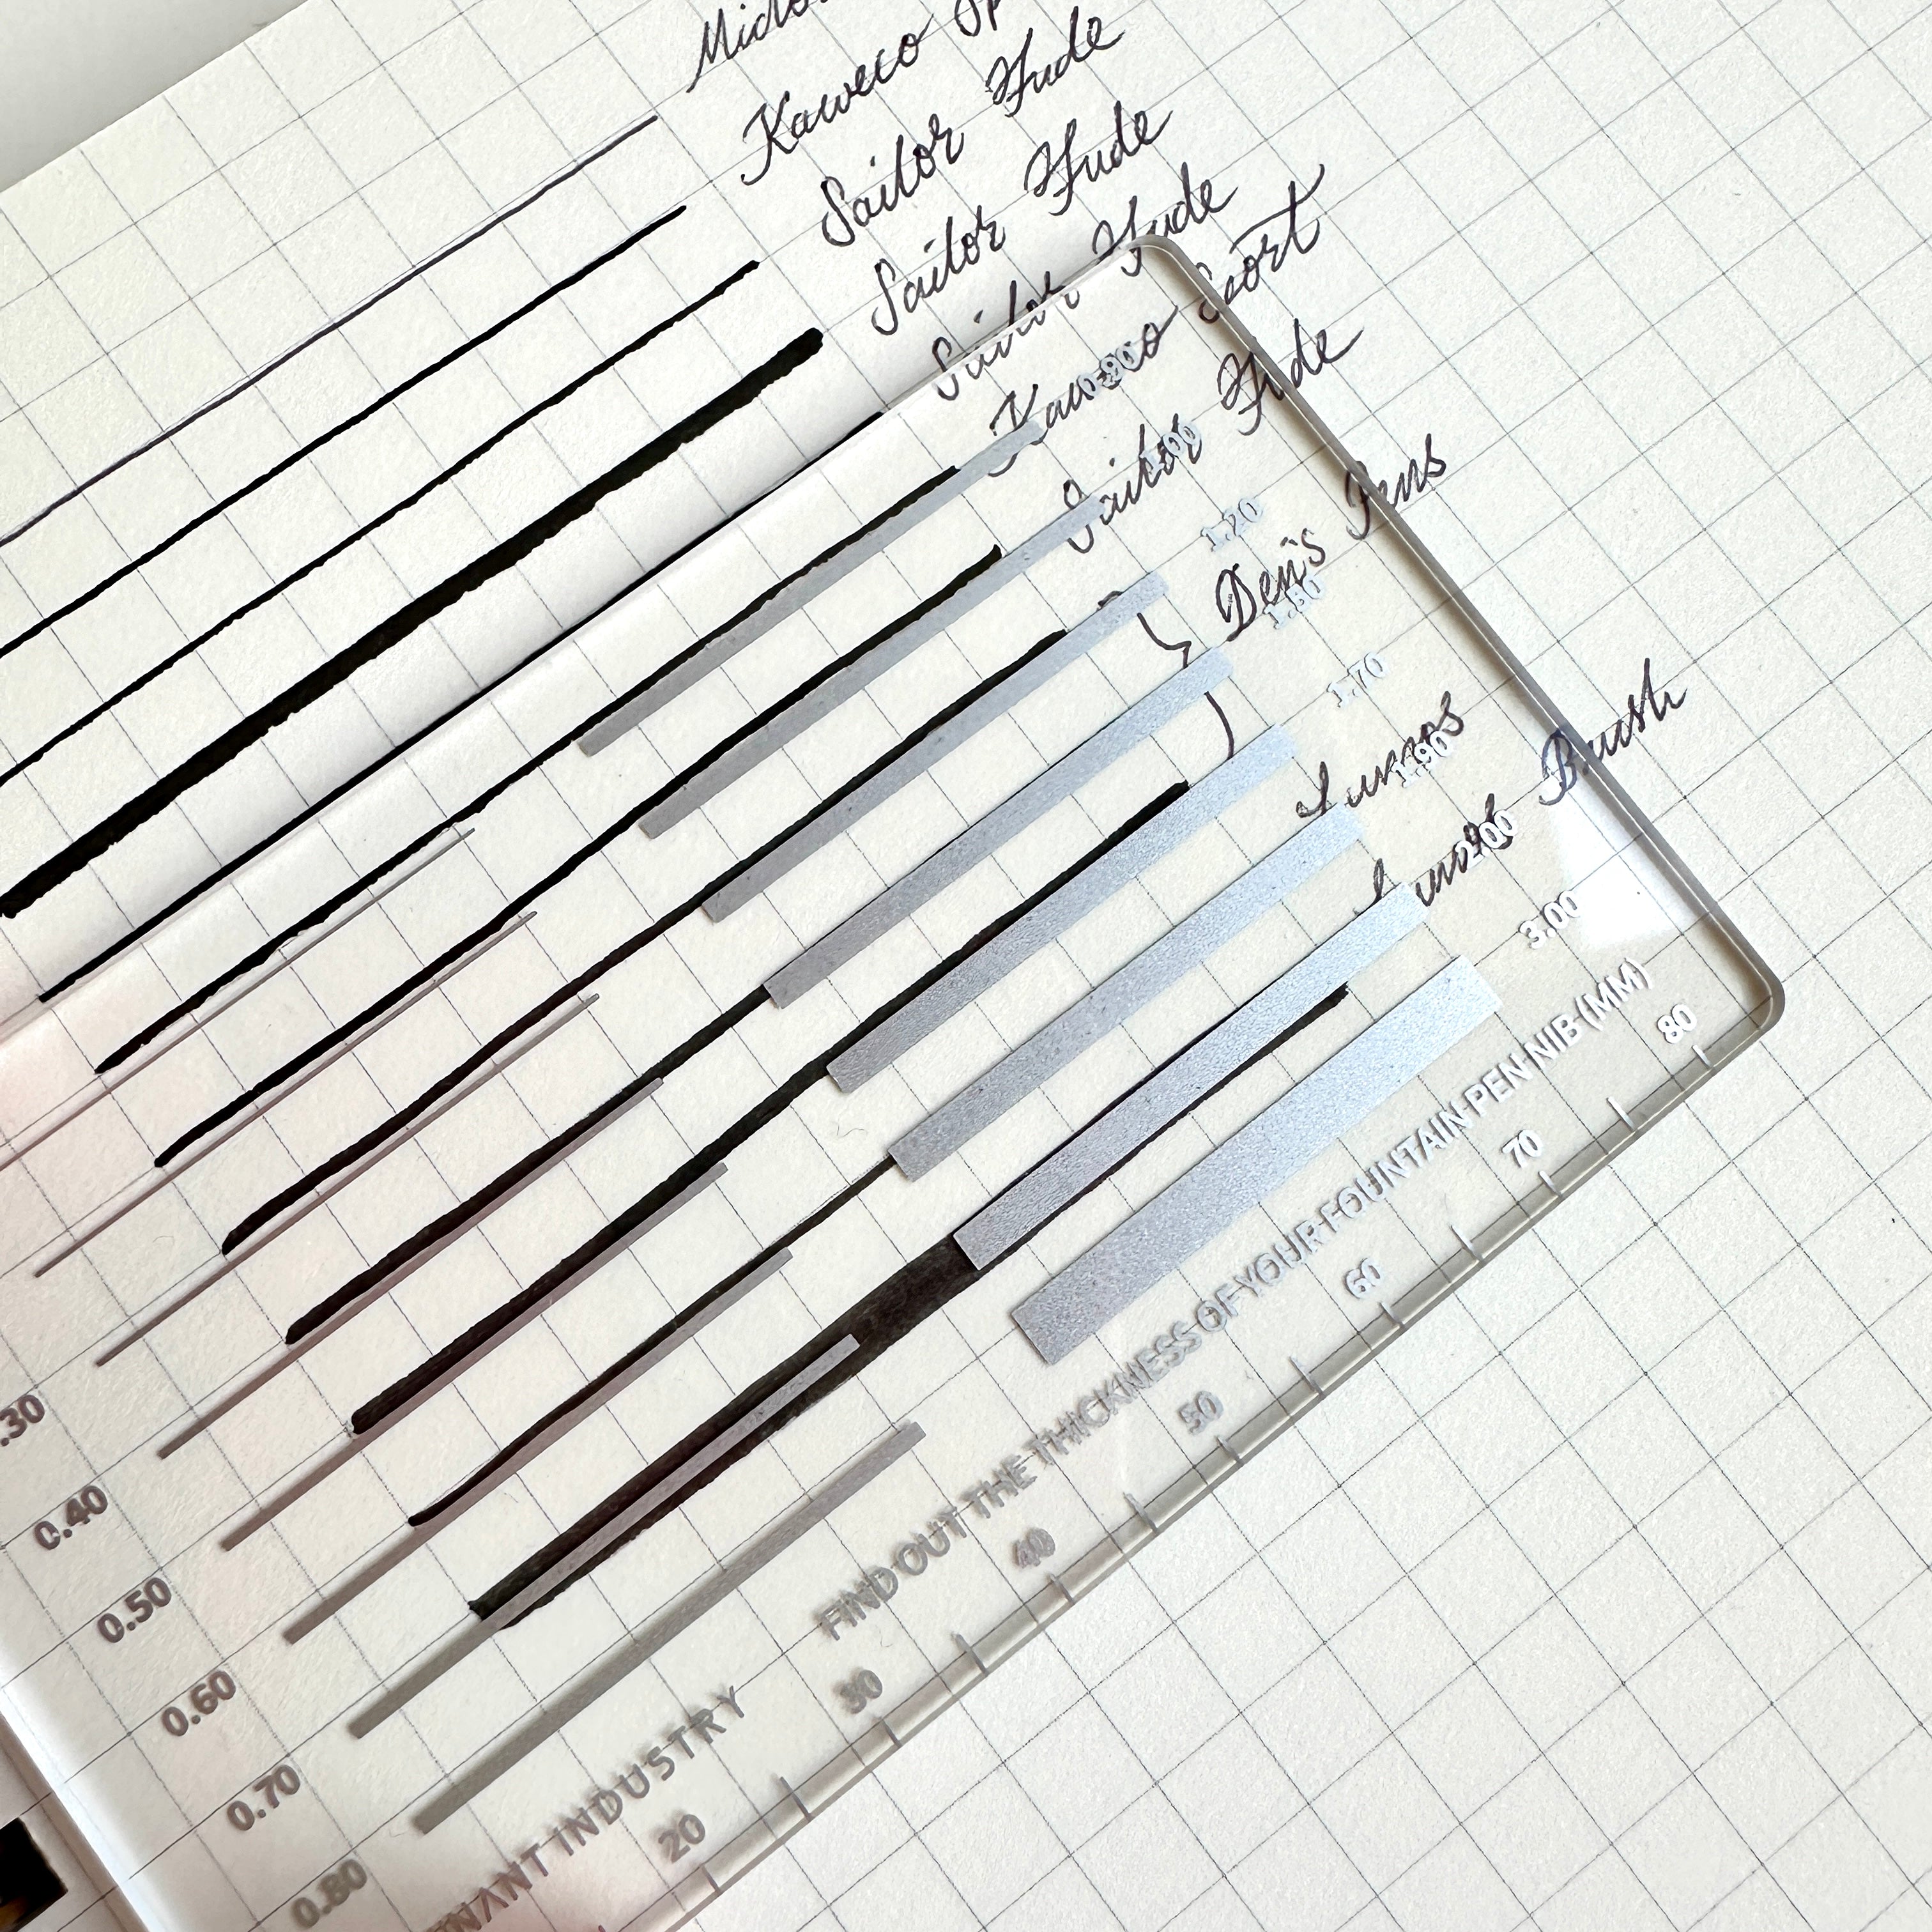 Kaweco
Sailor Fude
Sailor Fude
Sailor Fude
Kaweco Sport
Sailor Fude
Deni's Pens
Lumos
Lumos Brush
0.90
1.00
1.20
1.50
1.70
1.90
2.00
3.00
.30
0.40
0.50
0.60
0.70
0.80
FIND OUT THE THICKNESS OF YOUR FOUNTAIN PEN NIB (MM)
NANT INDUSTRY
20 30 40 50 60 70 80